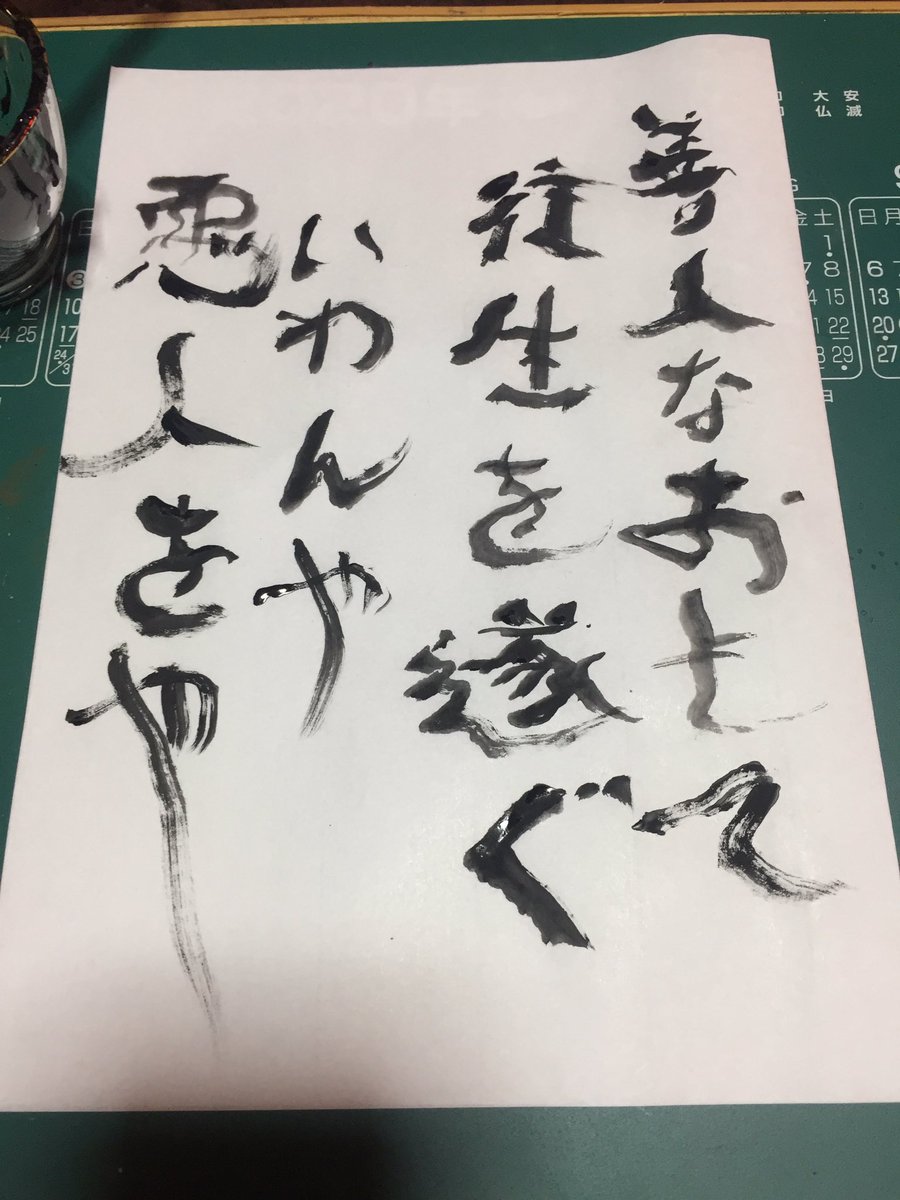 善人なおもて
往生を遂ぐ
いわんや
悪人をや
大安
仏滅
金土
1
8
15
22
29
日月
6
13
20
27
18
25
10
17
24/31